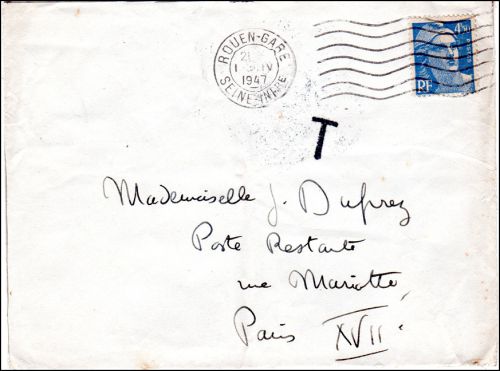 ROUEN-GARE
21
1947
SEINE-INFRE
4F50
RF
T
Mademoiselle J. Duprez
Poste Restante
rue Mariotte
Paris XVII